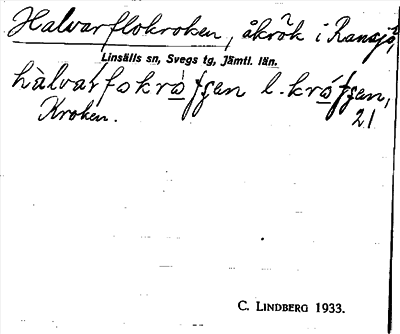 Halvarflokroken, åkrök i Ransjö,
Linsälls sn, Svegs tg, Jämtl. län.
l.
Kroken.
21
C. LINDBERG 1933.